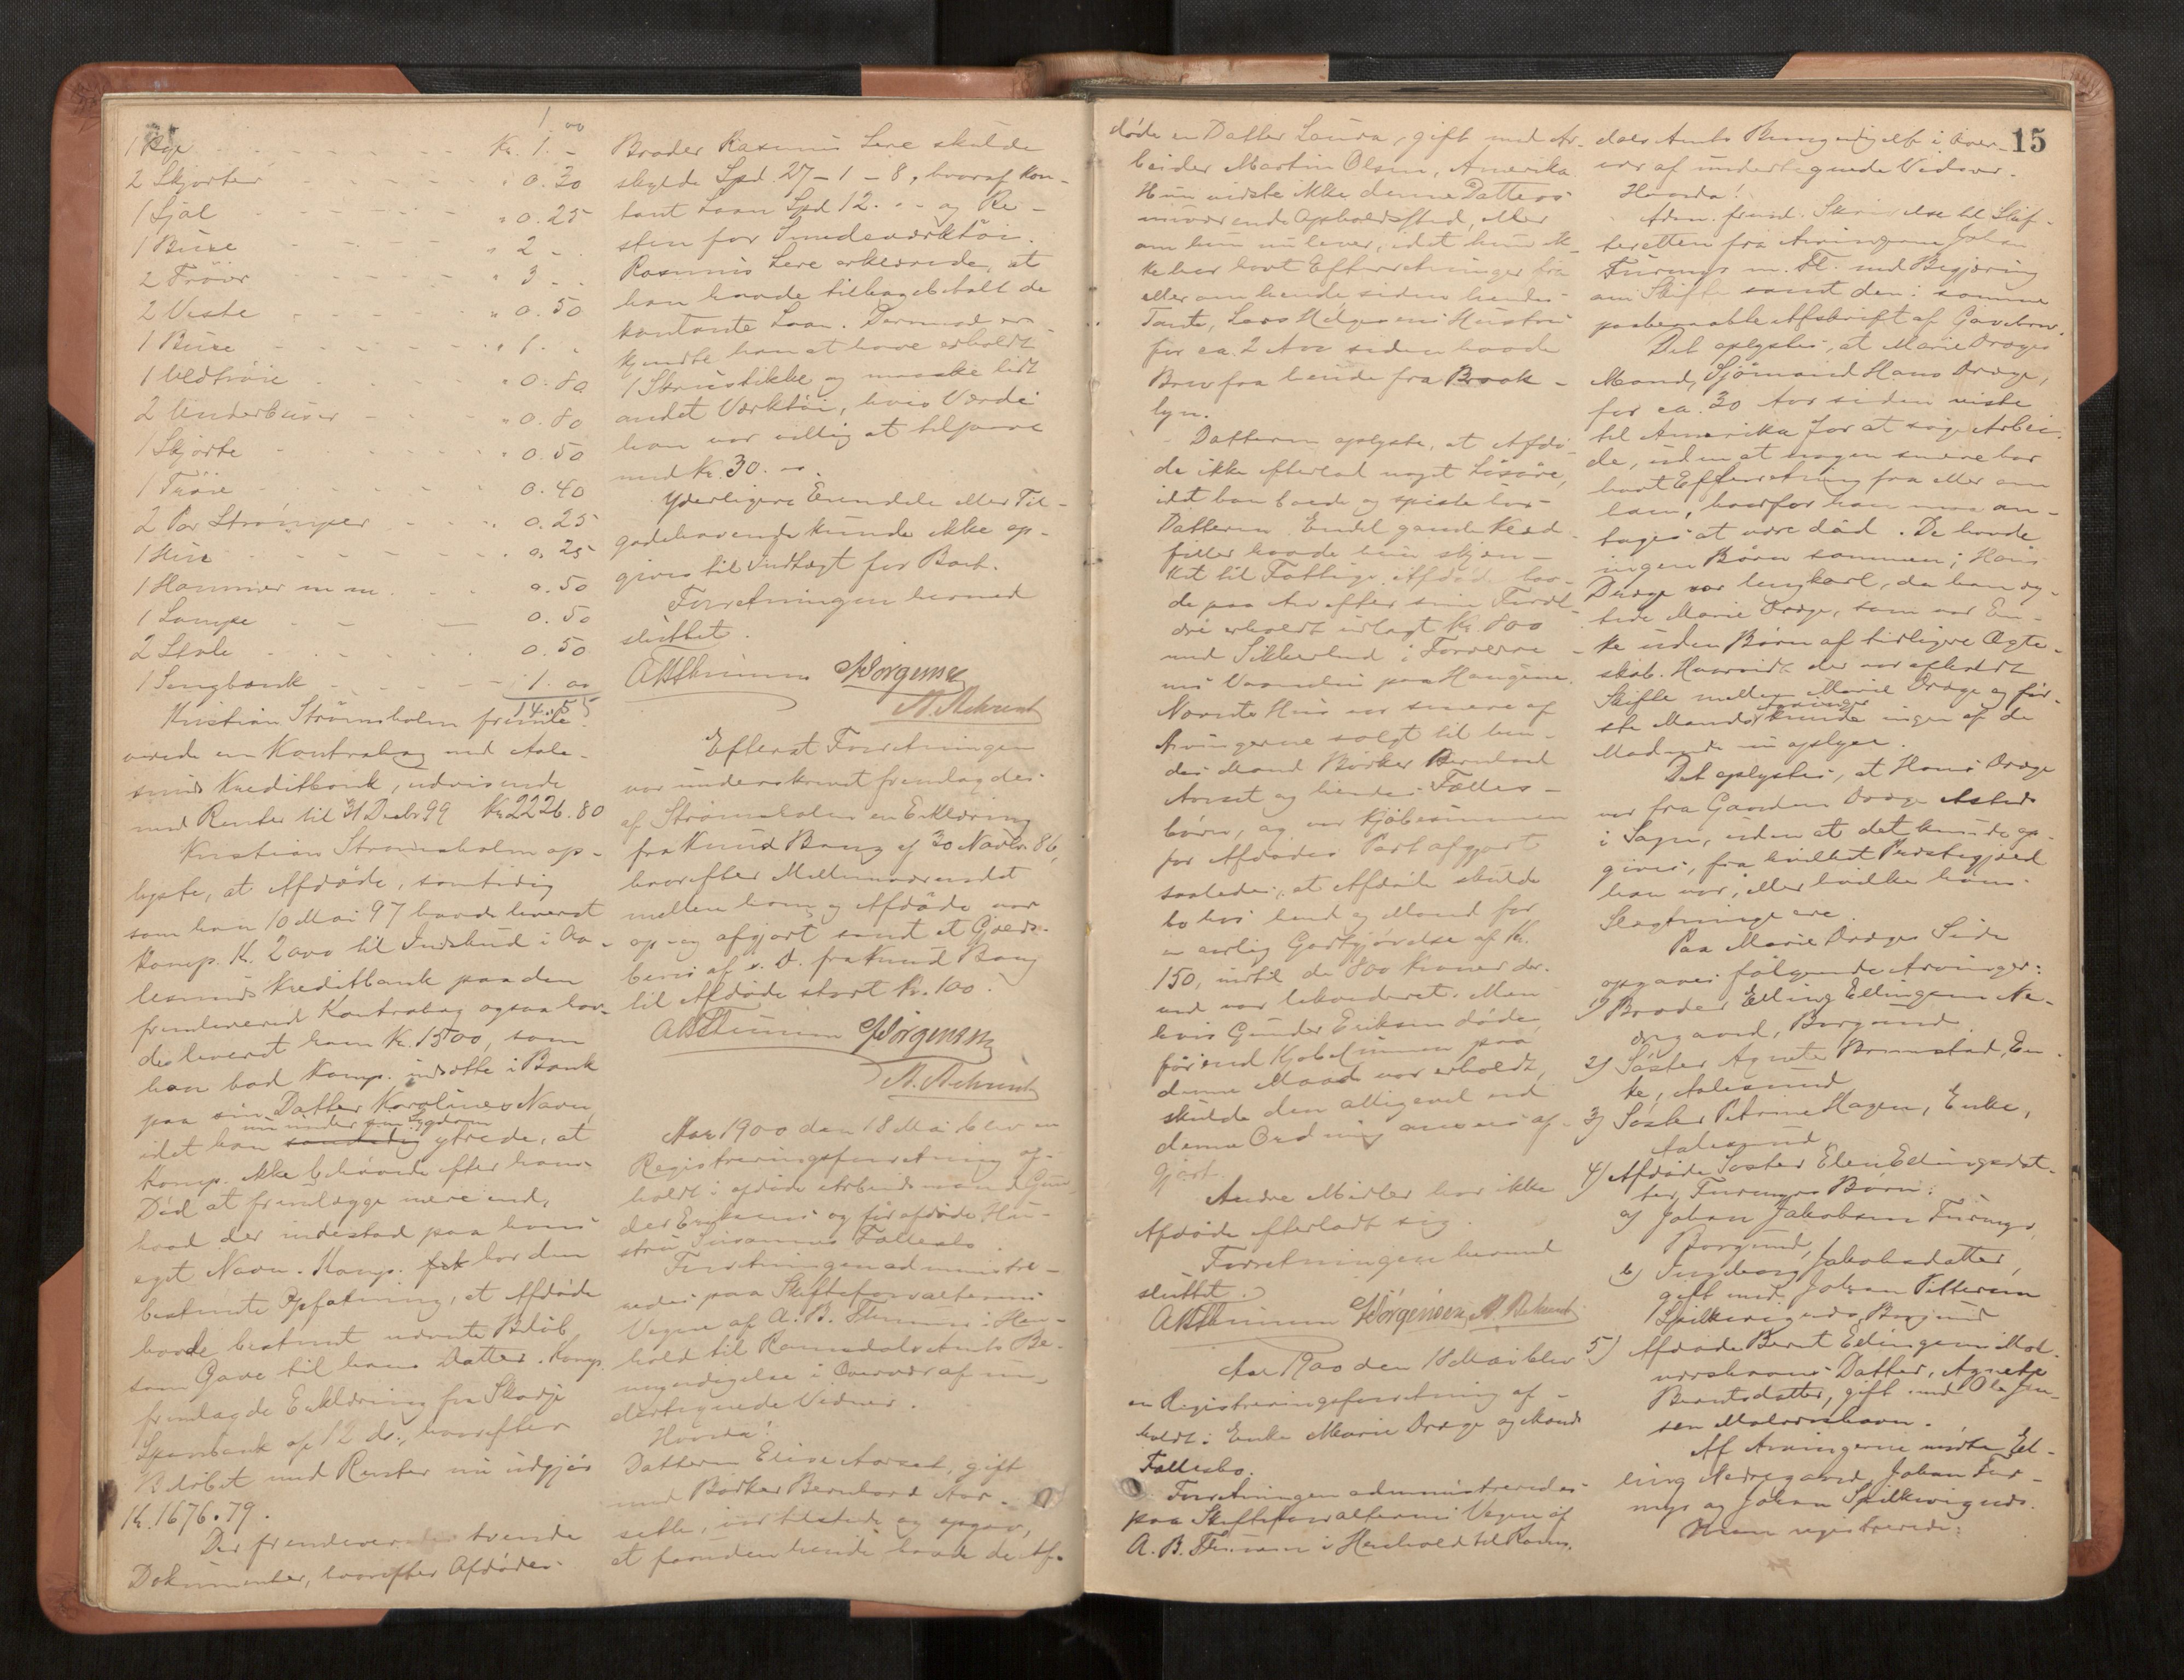 1 Øxe - - - - - - - Kr. 1. -
2 Skjorter - - - - - - " 0.30
1 Sjal - - - - - " 0.25
1 Buxe - - - - - " 2 - .
2 Trøier - - - - - " 3 . .
2 Veste - - - - - " 0.50
1 Buxe - - - - - " 1 . .
1 Uldtrøie - - - - " 0.80
2 Underbuxer - - - " 0.80
1 Skjorte - - - - - " 0.50
1 Trøie - - - - - 0.40
2 Par Strømper - - - " 0.25
1 - - - - - - . 0.25
1 Hammer m m . . . 0.50
1 Lampe - - - 0.50
2 Stole - - - - - 0.50
1 Sengbænk - - - - 1.00
14.55
Kristian Strømsholm fremle-
verede en Kontrabog med Aale-
sunds Kreditbank, udvisende
med Renter til 31 Decbr 99 Kr 2226.80
Kristian Strømsholm op-
lyste, at Afdøde, samtidig
som han 10 Mai 97 havde leveret
Komp. Kr. 2000 til Indskud i Aa-
lesunds Kreditbank paa den
fremleverede Kontrabog ogsaa hav-
de leveret ham Kr. 1500, som
han bad Komp. indsætte i Bank
paa sin Datter Karolines Navn,
nu under sin Sygdom
idet han samtidig ytrede, at
Komp. ikke behøvede efter hans
Død at fremlægge mere end,
hvad der indestod paa hans
eget Navn. Komp. fik har den
bestemte Opfatning, at Afdøde
havde bestemt nævnte Beløb
som Gave til hans Datter. Komp.
fremlagde Erklæring fra Skodje
Sparebank af 12 ds., hvorefter
Beløbet med Renter nu udgjør
Kr. 1676.79.
Der fremleveredes tvende
Dokumenter, hvorefter Afdødes
Broder Rasmus Lere skulde
skylde Spd. 27-1-8, hvoraf kon-
tant Laan Spd 12. - - og Re-
sten for Smedeværktøi.
Rasmus Lere erklærede, at
han havde tilbagebetalt de
kontante Laan. Dermod er-
kjendte han at have erholdt
1 Skruestikke og maaske lidt
andet Værktøi, hvis Værdi
han var villig at tilsvare
med Kr. 30. -.
Yderligere Eiendele eller Til-
godehavende kunde ikke op-
gives til Indtægt for Boet.
Forretningen hermed
sluttet.
AB Jørgensen
Efterat Forretningen
var underskrevet fremlagdes
af Strømsholm en Erklæring
fra Knud Bang af 30 Novbr 86,
hvorefter Mellemværendet
mellem ham og Afdøde var
op- og afgjort samt et Gjælds-
bevis af s. D. fra Knud Bang
til Afdøde stort Kr. 100.
AB Jørgensen
Aar 1900 den 18 Mai blev en
Registreringsforretning af-
holdt i afdøde Arbeidsmand Gun-
der Eriksens og før afdøde Hu-
stru Susannes Fællesbo.
Forretningen administre-
redes paa Skifteforvalterens
Vegne af A. B. i Hen-
hold til Romsdals Amts Be-
myndigelse i Overvær af un-
dertegnede Vidner.
Hvorda:
Datteren Elise Aarset, gift
med Bødker Bernhard Aar-
seth, var tilstede og opgav,
at foruden hende havde de Af-
15
døde en Datter Laura, gift med Ar-
beider Martin Olsen, Amerika.
Hun vidste ikke denne Datters
nuværende Opholdssted, eller
om hun nu lever, idet hun ik-
ke har havt Efterretninger fra
eller om hende siden hendes
Tante, Lars Helgesens Hustru
for ca. 2 Aar siden havde
Brev fra hende fra Brook-
lyn.
Datteren oplyste, at Afdø-
de ikke efterlod noget Løsøre,
idet han boede og spiste hos
Datteren. Endel gamle Klæd-
filler havde hun skjæn-
ket til Fattige. Afdøde hav-
de paa Arv efter sine Foræl-
dre erholdt udlagt Kr. 800
med Sikkerhed i Forældre-
nes Vaaning paa Haugene.
Nævnte Hus var senere af
Arvingerne solgt til hen-
des Mand Bødker Bernhard
Aarset og hendes Fælles-
børn, og var Kjøbesummen
for Afdødes Part afgjort
saaledes, at Afdøde skulde
bo hos hende og Mand for
en aarlig Godtgjørelse af Kr.
150, indtil de 800 Kroner der-
ved var likvideret. Men
hvis Gunder Eriksen døde,
før end Kjøbesummen paa
denne Maade var erholdt,
skulde den alligevel ved
denne Ordning ansees af-
gjort.
Andre Midler har ikke
Afdøde efterladt sig.
Forretningen hermed
sluttet.
AB Jørgensen
Aar 1900 den 18 Mai blev
en Registreringsforretning af-
holdt i Enke Marie Drage og Mands
Fællesbo.
Forretningen administreredes
paa Skifteforvalterens Vegne af
A. B. i Henhold til Roms-
dals Amts Bemyndigelse i Over-
vær af undertegnede Vidner.
Hvorda:
Adm. freml. Skrivelse til Skif-
teretten fra Arvingerne Johan
Furmyr m. Fl. med Begjæring
om Skifte samt den i samme
paaberaabte Afskrift af Gavebrev.
Det oplystes, at Marie Drages
Mand, Sjømand Hans Drage,
for ca. 30 Aar siden reiste
til Amerika for at søge Arbei-
de, uden at nogen senere har
havt Efterretning fra eller om
ham, hvorfor han maa an-
tages at være død. De havde
ingen Børn sammen; Hans
Drage var Ungkarl, da han æg-
tede Marie Drage, som var En-
ke uden Børn af tidligere Ægte-
skab. Hvorvidt der var afholdt
Skifte mellem Marie Drage og før-
Arvinger
ste Mands kunde ingen af de
Mødende nu oplyse.
Det oplystes, at Hans Drage
var fra Gaarden Drage
i Sogn, uden at det kunde op-
gives, fra hvilket Præstegjæld
han var, eller hvilke hans
Slægtninge ere.
Paa Marie Drages Side
opgaves følgende Arvinger:
1) Broder Elling Ellingsen Ne-
dregaard, Borgund.
2) Søster Agnete Bomstad, En-
ke, Aalesund
3) Søster Petrine Hagen, Enke,
Aalesund
4) Afdøde Søster Elen Ellingsdat-
ter Furmyrs Børn:
a) Johan Jakobsen Furmyr,
Borgund,
b) Ingeborg Jakobsdatter,
gift med Johan Pettersen
Spilkevigneds, Borgund
5) Afdøde Bernt Ellingsens Mol-
værshavns Datter, Agnete
Berntsdatter, gift med Ole Jen-
sen Molværshavn.
Af Arvingerne mødte El-
ling Nedregaard, Johan Fur-
myr og Johan Spilkevigneds.
Man registrerede: